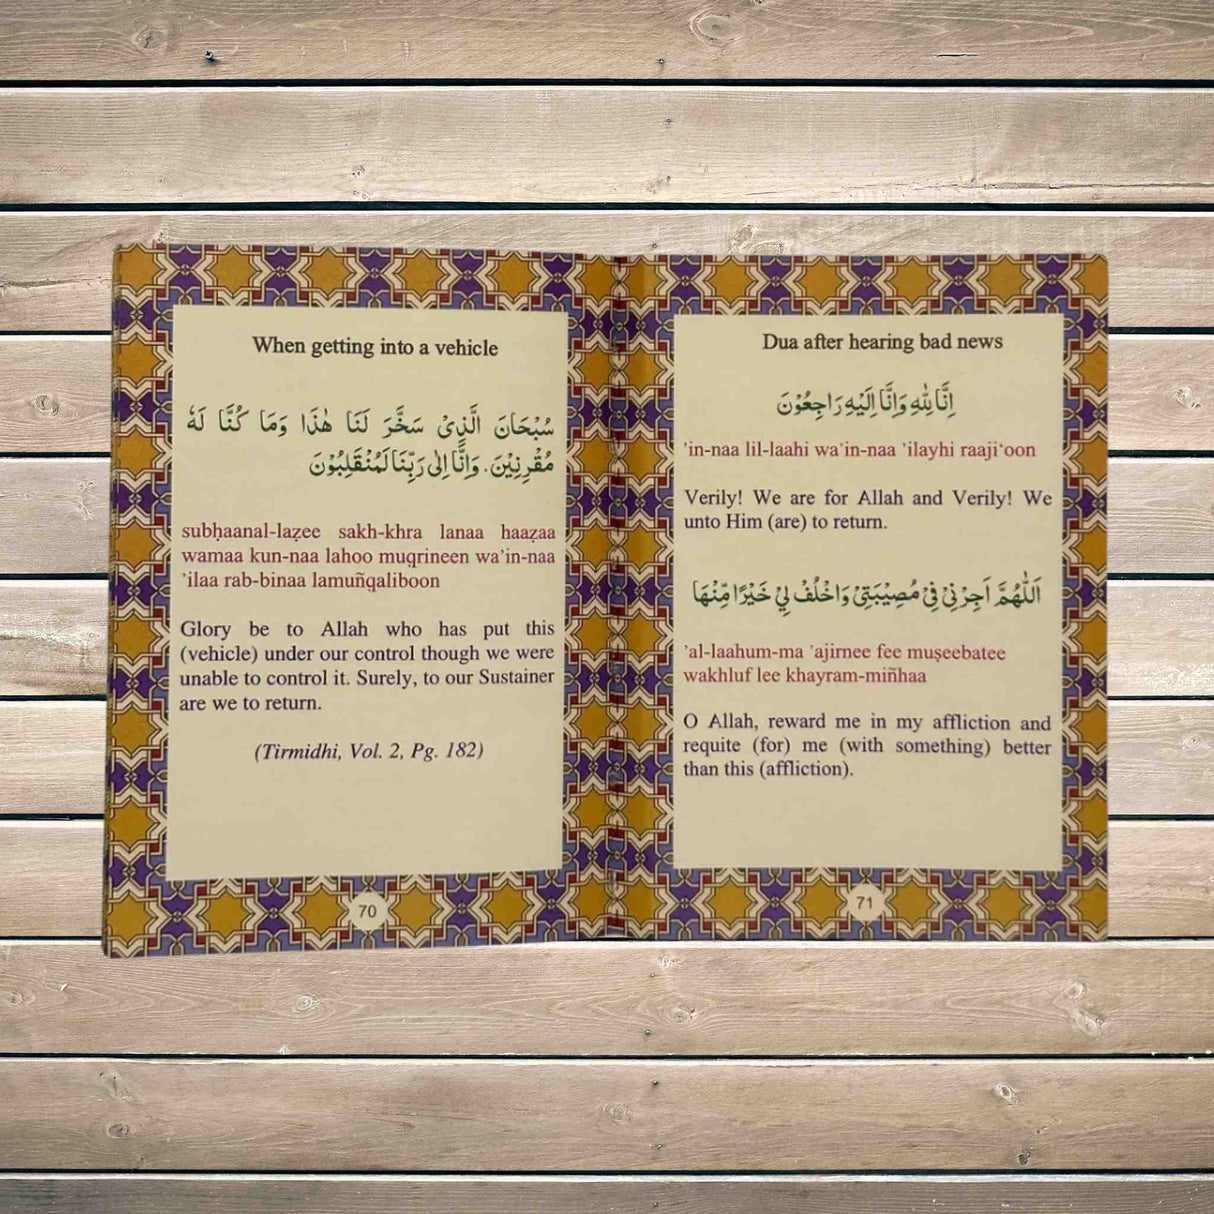 When getting into a vehicle
سُبْحَانَ الَّذِىْ سَخَّرَ لَنَا هٰذَا وَمَا كُنَّا لَهٗ
مُقْرِنِيْنَ. وَاِنَّا اِلٰى رَبِّنَا لَمُنْقَلِبُوْنَ
subḥaanal-laẓee sakh-khra lanaa haaẓaa
wamaa kun-naa lahoo muqrineen wa’in-naa
’ilaa rab-binaa lamuñqaliboon
Glory be to Allah who has put this
(vehicle) under our control though we were
unable to control it. Surely, to our Sustainer
are we to return.
(Tirmidhi, Vol. 2, Pg. 182)
70
Dua after hearing bad news
اِنَّا لِلّٰهِ وَاِنَّا اِلَيْهِ رَاجِعُوْنَ
’in-naa lil-laahi wa’in-naa ’ilayhi raaji‘oon
Verily! We are for Allah and Verily! We
unto Him (are) to return.
اَللّٰهُمَّ اَجِرْنِىْ فِىْ مُصِيْبَتِىْ وَاخْلُفْ لِىْ خَيْرًا مِّنْهَا
’al-laahum-ma ’ajirnee fee muṣeebatee
wakhluf lee khayram-miñhaa
O Allah, reward me in my affliction and
requite (for) me (with something) better
than this (affliction).
71